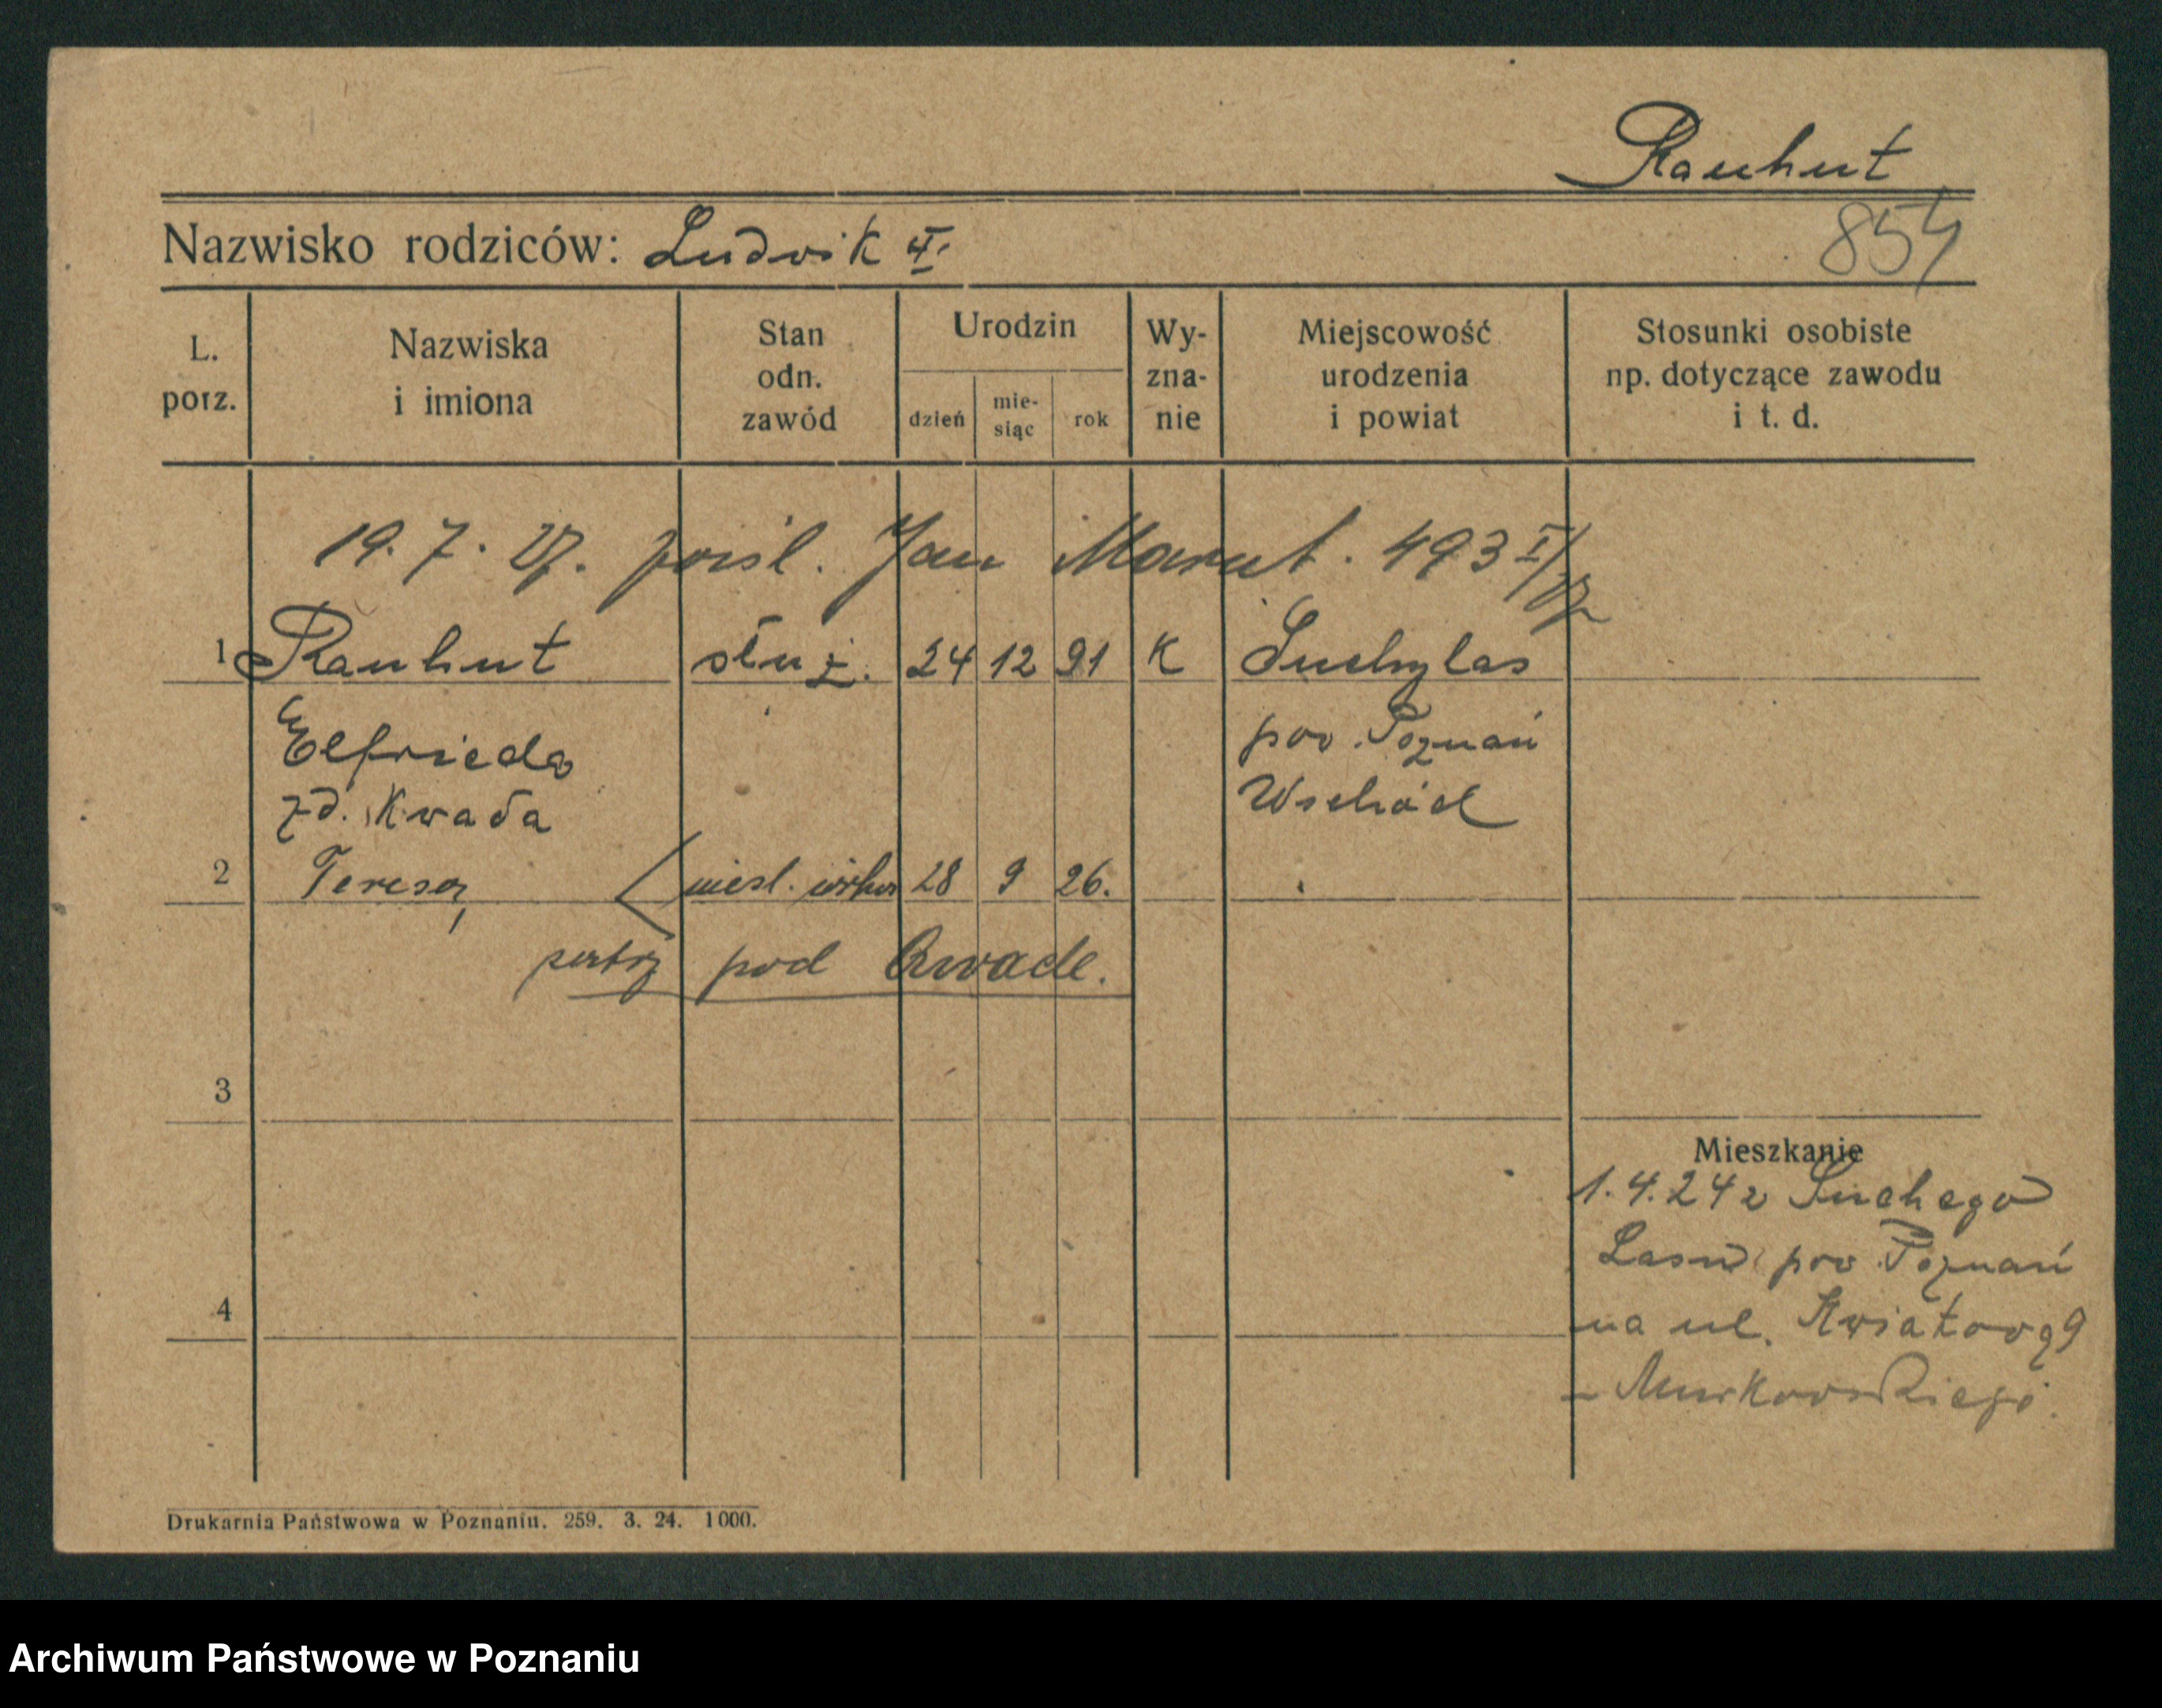 Rauhut
Nazwisko rodziców: Ludwik
854
L. porz.
Nazwiska i imiona
Stan odn. zawód
Urodzin
dzień
mie-siąc
rok
Wy-zna-nie
Miejscowość urodzenia i powiat
Stosunki osobiste np. dotyczące zawodu i t. d.
19. 7. 27. pośl. Jan Marut. 493 I/27
1 Rauhut służ. 24 12 91 K Suchylas
Elfrieda pow. Poznań
zd. Kwada Wschód
2 Teresa, nieśl. córka 28 9 26.
patrz pod Kwade.
3
Mieszkanie
1.4.24 z Suchego
Lasu pow Poznań
4
na ul. Kwiatową 9
- Murkowskiego.
Drukarnia Państwowa w Poznaniu. 259. 3. 24. 1000.
Archiwum Państwowe w Poznaniu